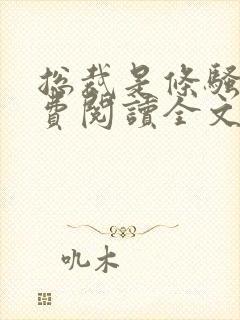 总裁是條騷
費閱讀全文
叽木